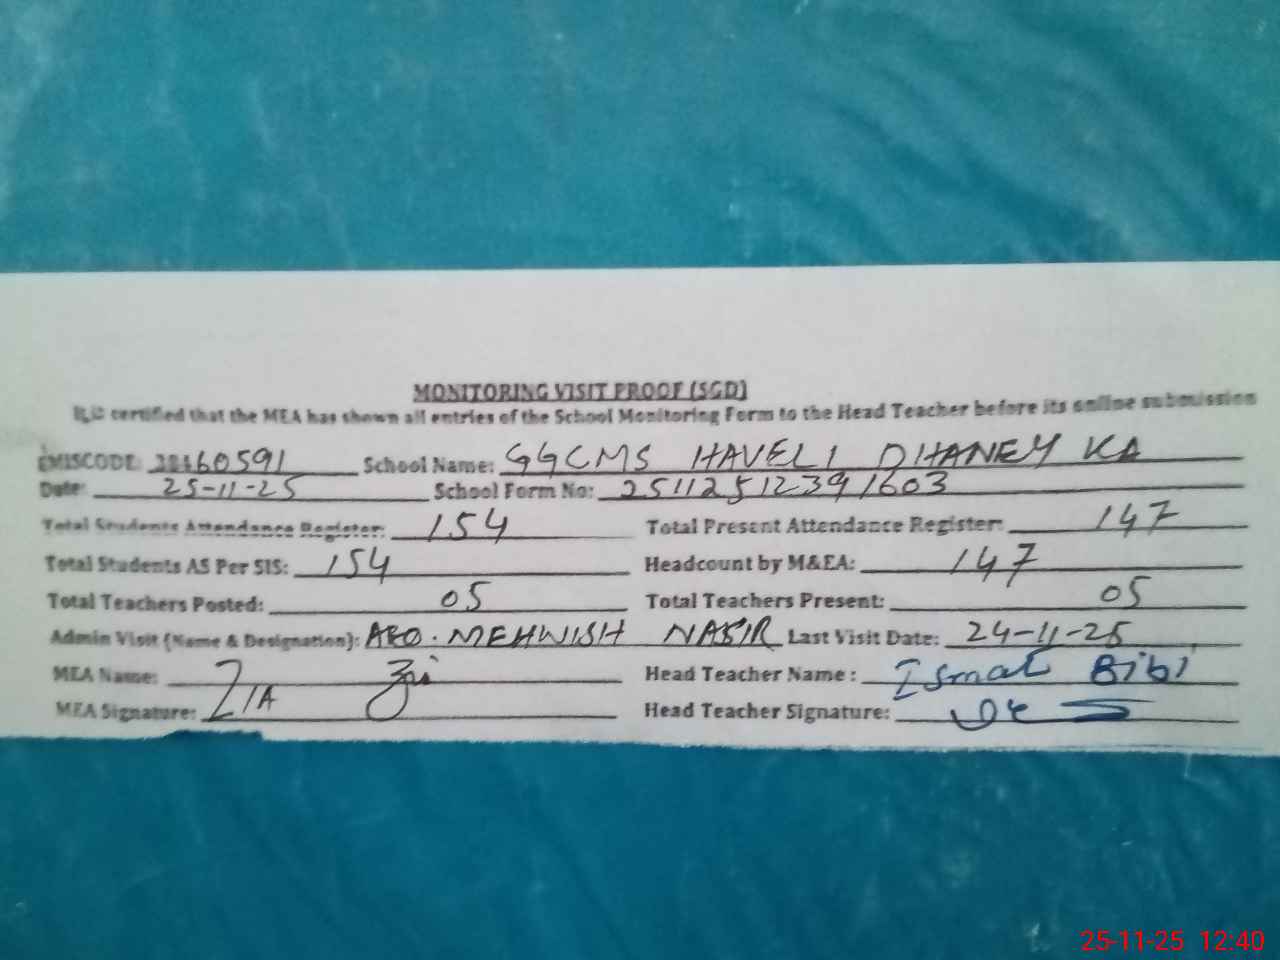 MONITORING VISIT PROOF (SGD)
It is certified that the MEA has shown all entries of the School Monitoring Form to the Head Teacher before its online submission
EMISCODE: 38460591 School Name: GGCMS HAVELI DHANEY KA
Date: 25-11-25 School Form No: 25112512391603
Total Students Attendance Register: 154 Total Present Attendance Register: 147
Total Students AS Per SIS: 154 Headcount by M&EA: 147
Total Teachers Posted: 05 Total Teachers Present: 05
Admin Visit (Name & Designation): AEO. MEHWISH NASIR Last Visit Date: 24-11-25
MEA Name: ZIA Head Teacher Name: Ismat Bibi
MEA Signature: Head Teacher Signature:
25-11-25 12:40